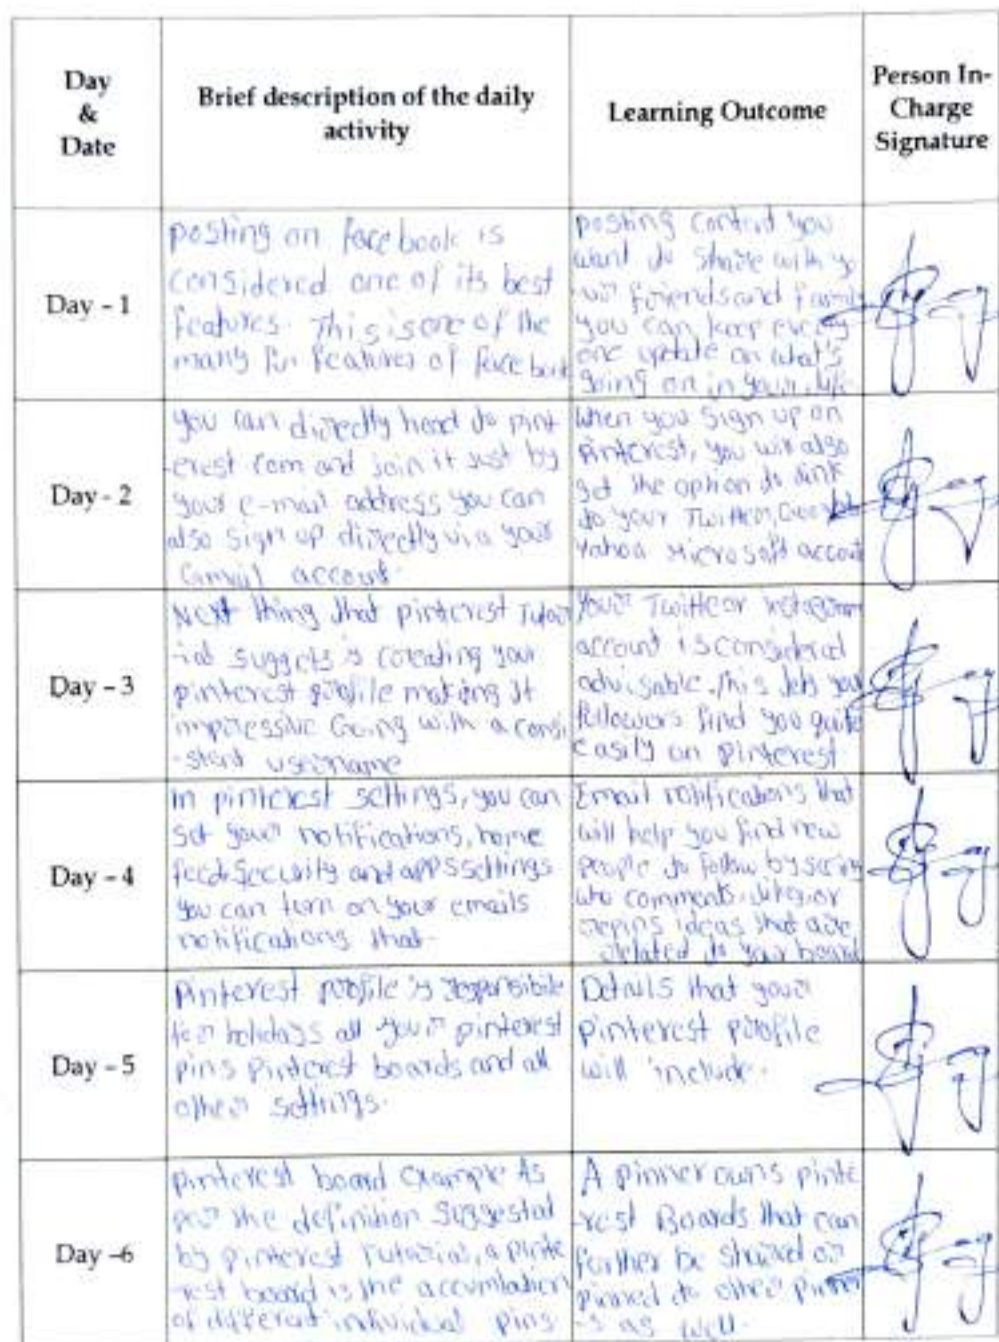 Day
&
Date
Brief description of the daily
activity
Learning Outcome
Person In-
Charge
Signature
Day - 1
posting on facebook is
considered one of its best
features. This is one of the
many fun features of facebook
posting content you
want to share with yo
-ur friends and family
you can keep every
one update on what's
going on in your life.
Day - 2
you can directly head to pint
-erest com and join it just by
your e-mail address you can
also sign up directly via your
Gmail account.
when you sign up on
Pinterest, you will also
get the option to link
to your Twitter, Google
Yahoo Microsoft account
Day - 3
Next thing that pinterest Tutor
-ial suggets is creating your
pinterest profile making it
impressive Going with a consi
-stent username
your Twitter or instagram
account is considered
advisable. This lets your
followers find you quite
easily on pinterest
Day - 4
In pinterest settings, you can
set your notifications, home
feed, security and apps settings
you can turn on your emails
notifications that.
Email notifications that
will help you find new
people to follow by seeing
who comments, likes, or
repins ideas that are
related to your board
Day - 5
Pinterest profile is responsibile
for holidays all your pinterest
pins Pinterest boards and all
other settings.
Details that your
pinterest profile
will include.
Day -6
pinterest board Example As
per the definition Suggested
by pinterest Tutorial, a pinte
-rest board is the accumlation
of different individual pins
A pinner owns pinte
-rest Boards that can
further be shared or
pinned to other pinner
-s as well.